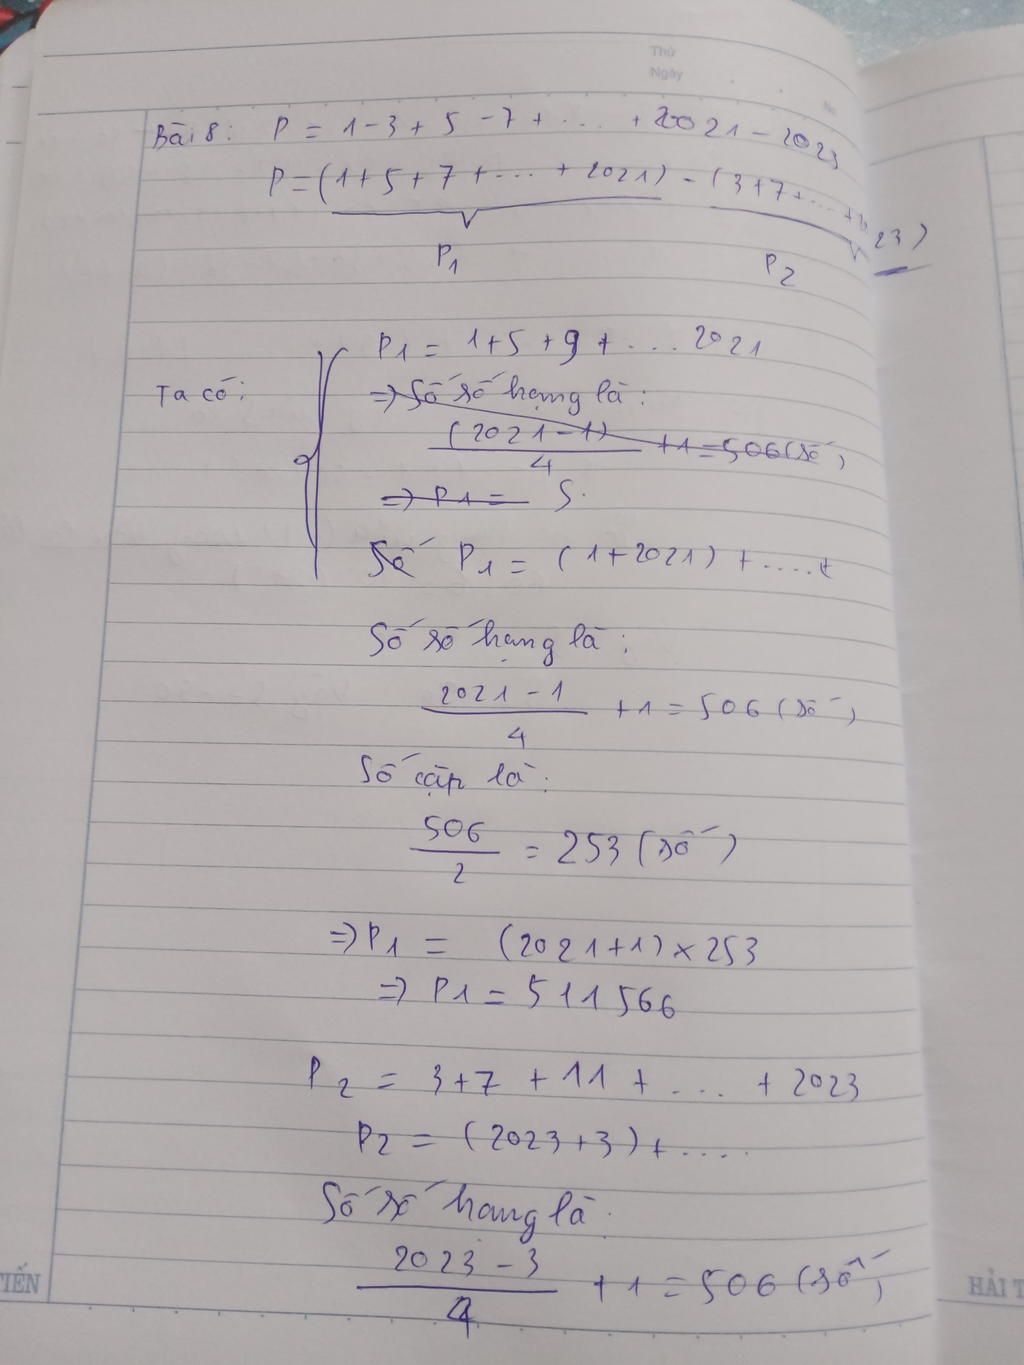 Thứ
Ngày
No
Bài 8: P = 1 - 3 + 5 - 7 + .... + 2021 - 2023
P = (1 + 5 + 7 + ... + 2021) - (3 + 7 + ... + 2023)
P1 P2
P1 = 1 + 5 + 9 + ... 2021
Ta có: => Số số hạng là:
(2021 - 1)/4 + 1 = 506 (số)
=> P1 = S.
Số P1 = (1 + 2021) + ..... +
Số số hạng là:
(2021 - 1)/4 + 1 = 506 (số)
Số cặp là:
506/2 = 253 (số)
=> P1 = (2021 + 1) x 253
=> P1 = 511566
P2 = 3 + 7 + 11 + .... + 2023
P2 = (2023 + 3) + .....
Số số hang là.
(2023 - 3)/4 + 1 = 506 (số)
TIẾN
HẢI T